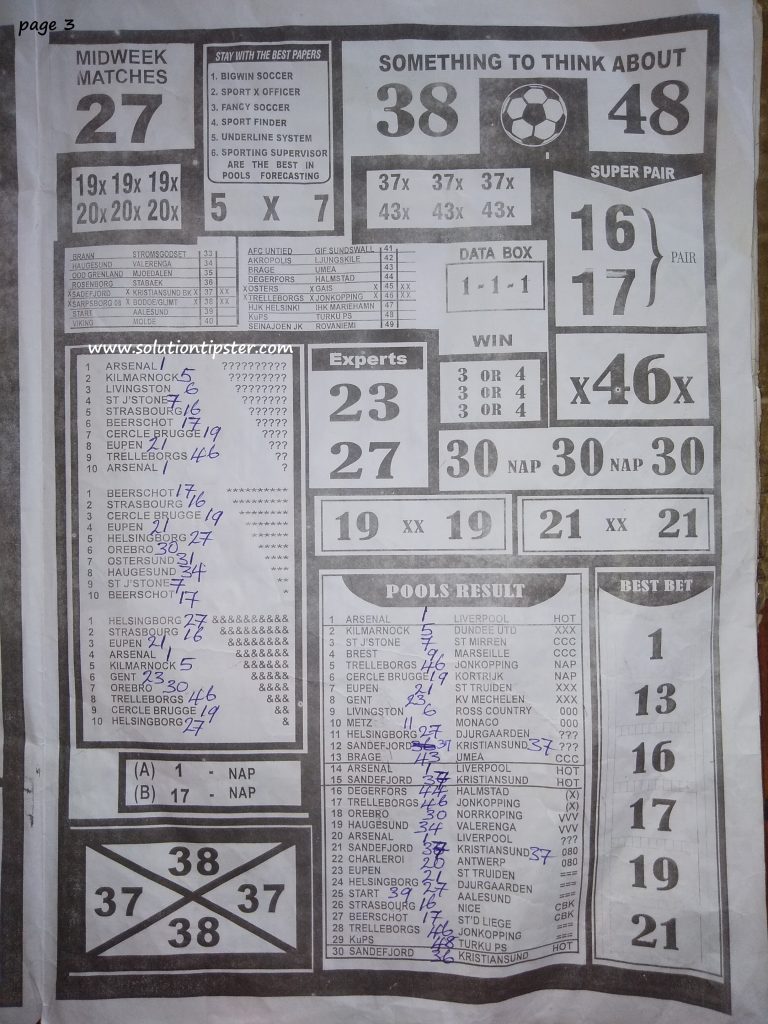 page 3
MIDWEEK
MATCHES
27
STAY WITH THE BEST PAPERS
1. BIGWIN SOCCER
2. SPORT X OFFICER
3. FANCY SOCCER
4. SPORT FINDER
5. UNDERLINE SYSTEM
6. SPORTING SUPERVISOR
ARE THE BEST IN
POOLS FORECASTING
5 X 7
SOMETHING TO THINK ABOUT
38 48
19x 19x 19x
20x 20x 20x
37x 37x 37x
43x 43x 43x
SUPER PAIR
16
17
PAIR
BRANN STROMSGODSET 33
HAUGESUND VALERENGA 34
ODD GRENLAND MJOEDALEN 35
ROSENBORG STABAEK 36
X SADEFJORD X KRISTIANSUND BK X 37 XX
X SARPSBORG 08 X BODOE/GLIMT X 38 XX
START AALESUND 39
VIKING MOLDE 40
AFC UNTIED GIF SUNDSWALL 41
AKROPOLIS LJUNGSKILE 42
BRAGE UMEA 43
DEGERFORS HALMSTAD 44
X OSTERS X GAIS X 45 XX
X TRELLEBORGS X JONKOPPING X 46 XX
HJK HELSINKI IHK MARIEHAMN 47
KuPS TURKU PS 48
SEINAJOEN JK ROVANIEMI 49
DATA BOX
1-1-1
WIN
3 OR 4
3 OR 4
3 OR 4
x46x
www.solutiontipster.com
1 ARSENAL 1 ??????????
2 KILMARNOCK 5 ?????????
3 LIVINGSTON 6 ????????
4 ST J'STONE 7 ???????
5 STRASBOURG 16 ??????
6 BEERSCHOT 17 ?????
7 CERCLE BRUGGE 19 ????
8 EUPEN 21 ???
9 TRELLEBORGS 46 ??
10 ARSENAL 1 ?
1 BEERSCHOT 17 **********
2 STRASBOURG 16 *********
3 CERCLE BRUGGE 19 ********
4 EUPEN 21 *******
5 HELSINGBORG 27 ******
6 OREBRO 30 *****
7 OSTERSUND 31 ****
8 HAUGESUND 34 ***
9 ST J'STONE 7 **
10 BEERSCHOT 17 *
1 HELSINGBORG 27 &&&&&&&&&&
2 STRASBOURG 16 &&&&&&&&&
3 EUPEN 21 &&&&&&&&
4 ARSENAL 1 &&&&&&&
5 KILMARNOCK 5 &&&&&&
6 GENT 23 &&&&&
7 OREBRO 30 &&&&
8 TRELLEBORGS 46 &&&
9 CERCLE BRUGGE 19 &&
10 HELSINGBORG 27 &
Experts
23
27
30 NAP 30 NAP 30
19 xx 19
21 xx 21
(A) 1 - NAP
(B) 17 - NAP
38
37 37
38
POOLS RESULT
1 ARSENAL 1 LIVERPOOL HOT
2 KILMARNOCK 5 DUNDEE UTD XXX
3 ST J'STONE 7 ST MIRREN CCC
4 BREST 9 MARSEILLE CCC
5 TRELLEBORGS 46 JONKOPPING NAP
6 CERCLE BRUGGE 19 KORTRIJK NAP
7 EUPEN 21 ST TRUIDEN XXX
8 GENT 23 KV MECHELEN XXX
9 LIVINGSTON 6 ROSS COUNTRY 000
10 METZ 11 MONACO 000
11 HELSINGBORG 27 DJURGAARDEN ???
12 SANDEFJORD 37 KRISTIANSUND 37 ???
13 BRAGE 43 UMEA CCC
14 ARSENAL 1 LIVERPOOL HOT
15 SANDEFJORD 37 KRISTIANSUND HOT
16 DEGERFORS 44 HALMSTAD (X)
17 TRELLEBORGS 46 JONKOPPING (X)
18 OREBRO 30 NORRKOPING VVV
19 HAUGESUND 34 VALERENGA VVV
20 ARSENAL 1 LIVERPOOL ???
21 SANDEFJORD 37 KRISTIANSUND 37 080
22 CHARLEROI 20 ANTWERP 080
23 EUPEN 21 ST TRUIDEN ===
24 HELSINGBORG 27 DJURGAARDEN ===
25 START 39 AALESUND ===
26 STRASBOURG 16 NICE CBK
27 BEERSCHOT 17 ST'D LIEGE CBK
28 TRELLEBORGS 46 JONKOPPING ===
29 KuPS 48 TURKU PS ===
30 SANDEFJORD 36 KRISTIANSUND HOT
BEST BET
1
13
16
17
19
21